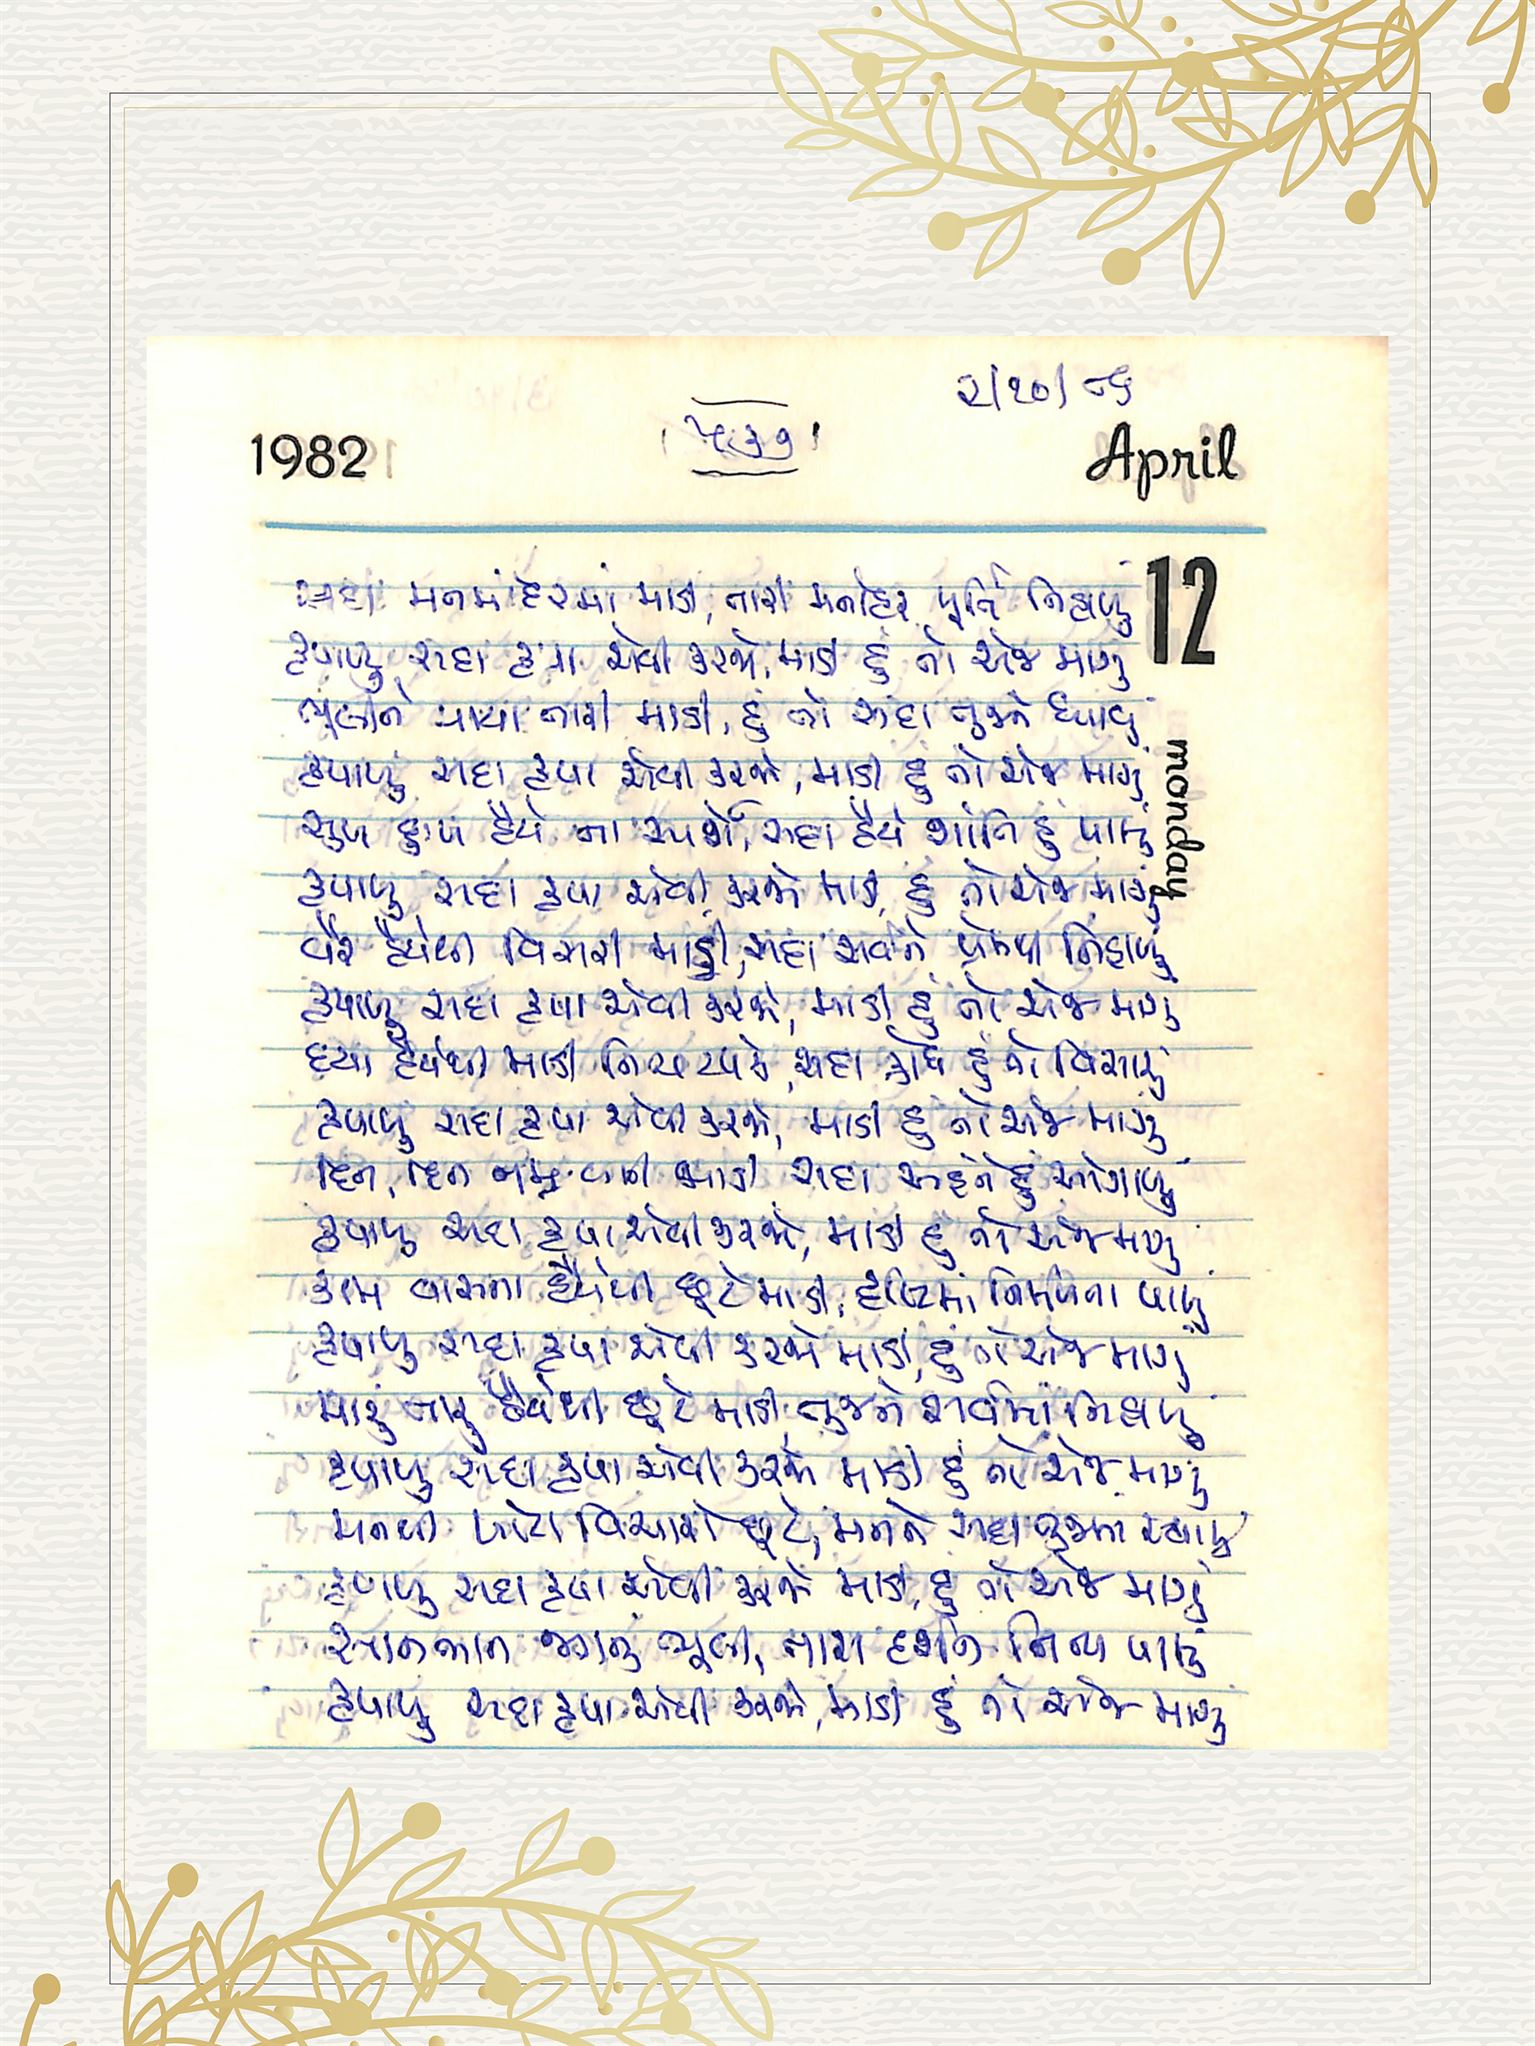 ૨/૧૦/૮૬
૫૮૩૭
1982
April
12
monday
સદા મનમંદિરમાં માડી, તારી મનોહર મૂર્તિ નિહાળું
કૃપાળુ સદા કૃપા એવી કરજે, માડી હું તો એજ માગું
ભૂલીને માયા તારી માડી, હું તો સદા તુજને ધ્યાવું
કૃપાળુ સદા કૃપા એવી કરજે, માડી હું તો એજ માગું
સુખ દુઃખ હૈયે ના સ્પર્શે, સદા હૈયે શાંતિ હું પામું
કૃપાળુ સદા કૃપા એવી કરજે માડી, હું તો એજ માગું
વેર હૈયેથી વિસરી માડી, સદા સર્વને પ્રેમથી નિહાળું
કૃપાળુ સદા કૃપા એવી કરજે, માડી હું તો એજ માગું
દયા હૈયેથી માડી નિત્ય ટપકે, સદા ક્રોધ હું તો વિસારું
કૃપાળુ સદા કૃપા એવી કરજે, માડી હું તો એજ માગું
દિન, દિન નમ્ર બની માડી સદા અહંને હું ઓગાળું
કૃપાળુ સદા કૃપા એવી કરજે, માડી હું તો એજ માગું
કામ વાસના હૈયેથી છૂટે માડી, દૃષ્ટિમાં નિર્મળતા પામું
કૃપાળુ સદા કૃપા એવી કરજે માડી, હું તો એજ માગું
મારું તારું હૈયેથી છૂટે માડી, તુજને સર્વમાં નિહાળું
કૃપાળુ સદા કૃપા એવી કરજે માડી હું તો એજ માગું
મનથી ખોટા વિચારો છૂટે, મનને સદા તુજમાં સ્થાપું
કૃપાળુ સદા કૃપા એવી કરજે માડી, હું તો એજ માગું
ભાન જગનું ભૂલી, તારા દર્શન નિત્ય પામું
કૃપાળુ સદા કૃપા એવી કરજે, માડી હું તો એજ માગું